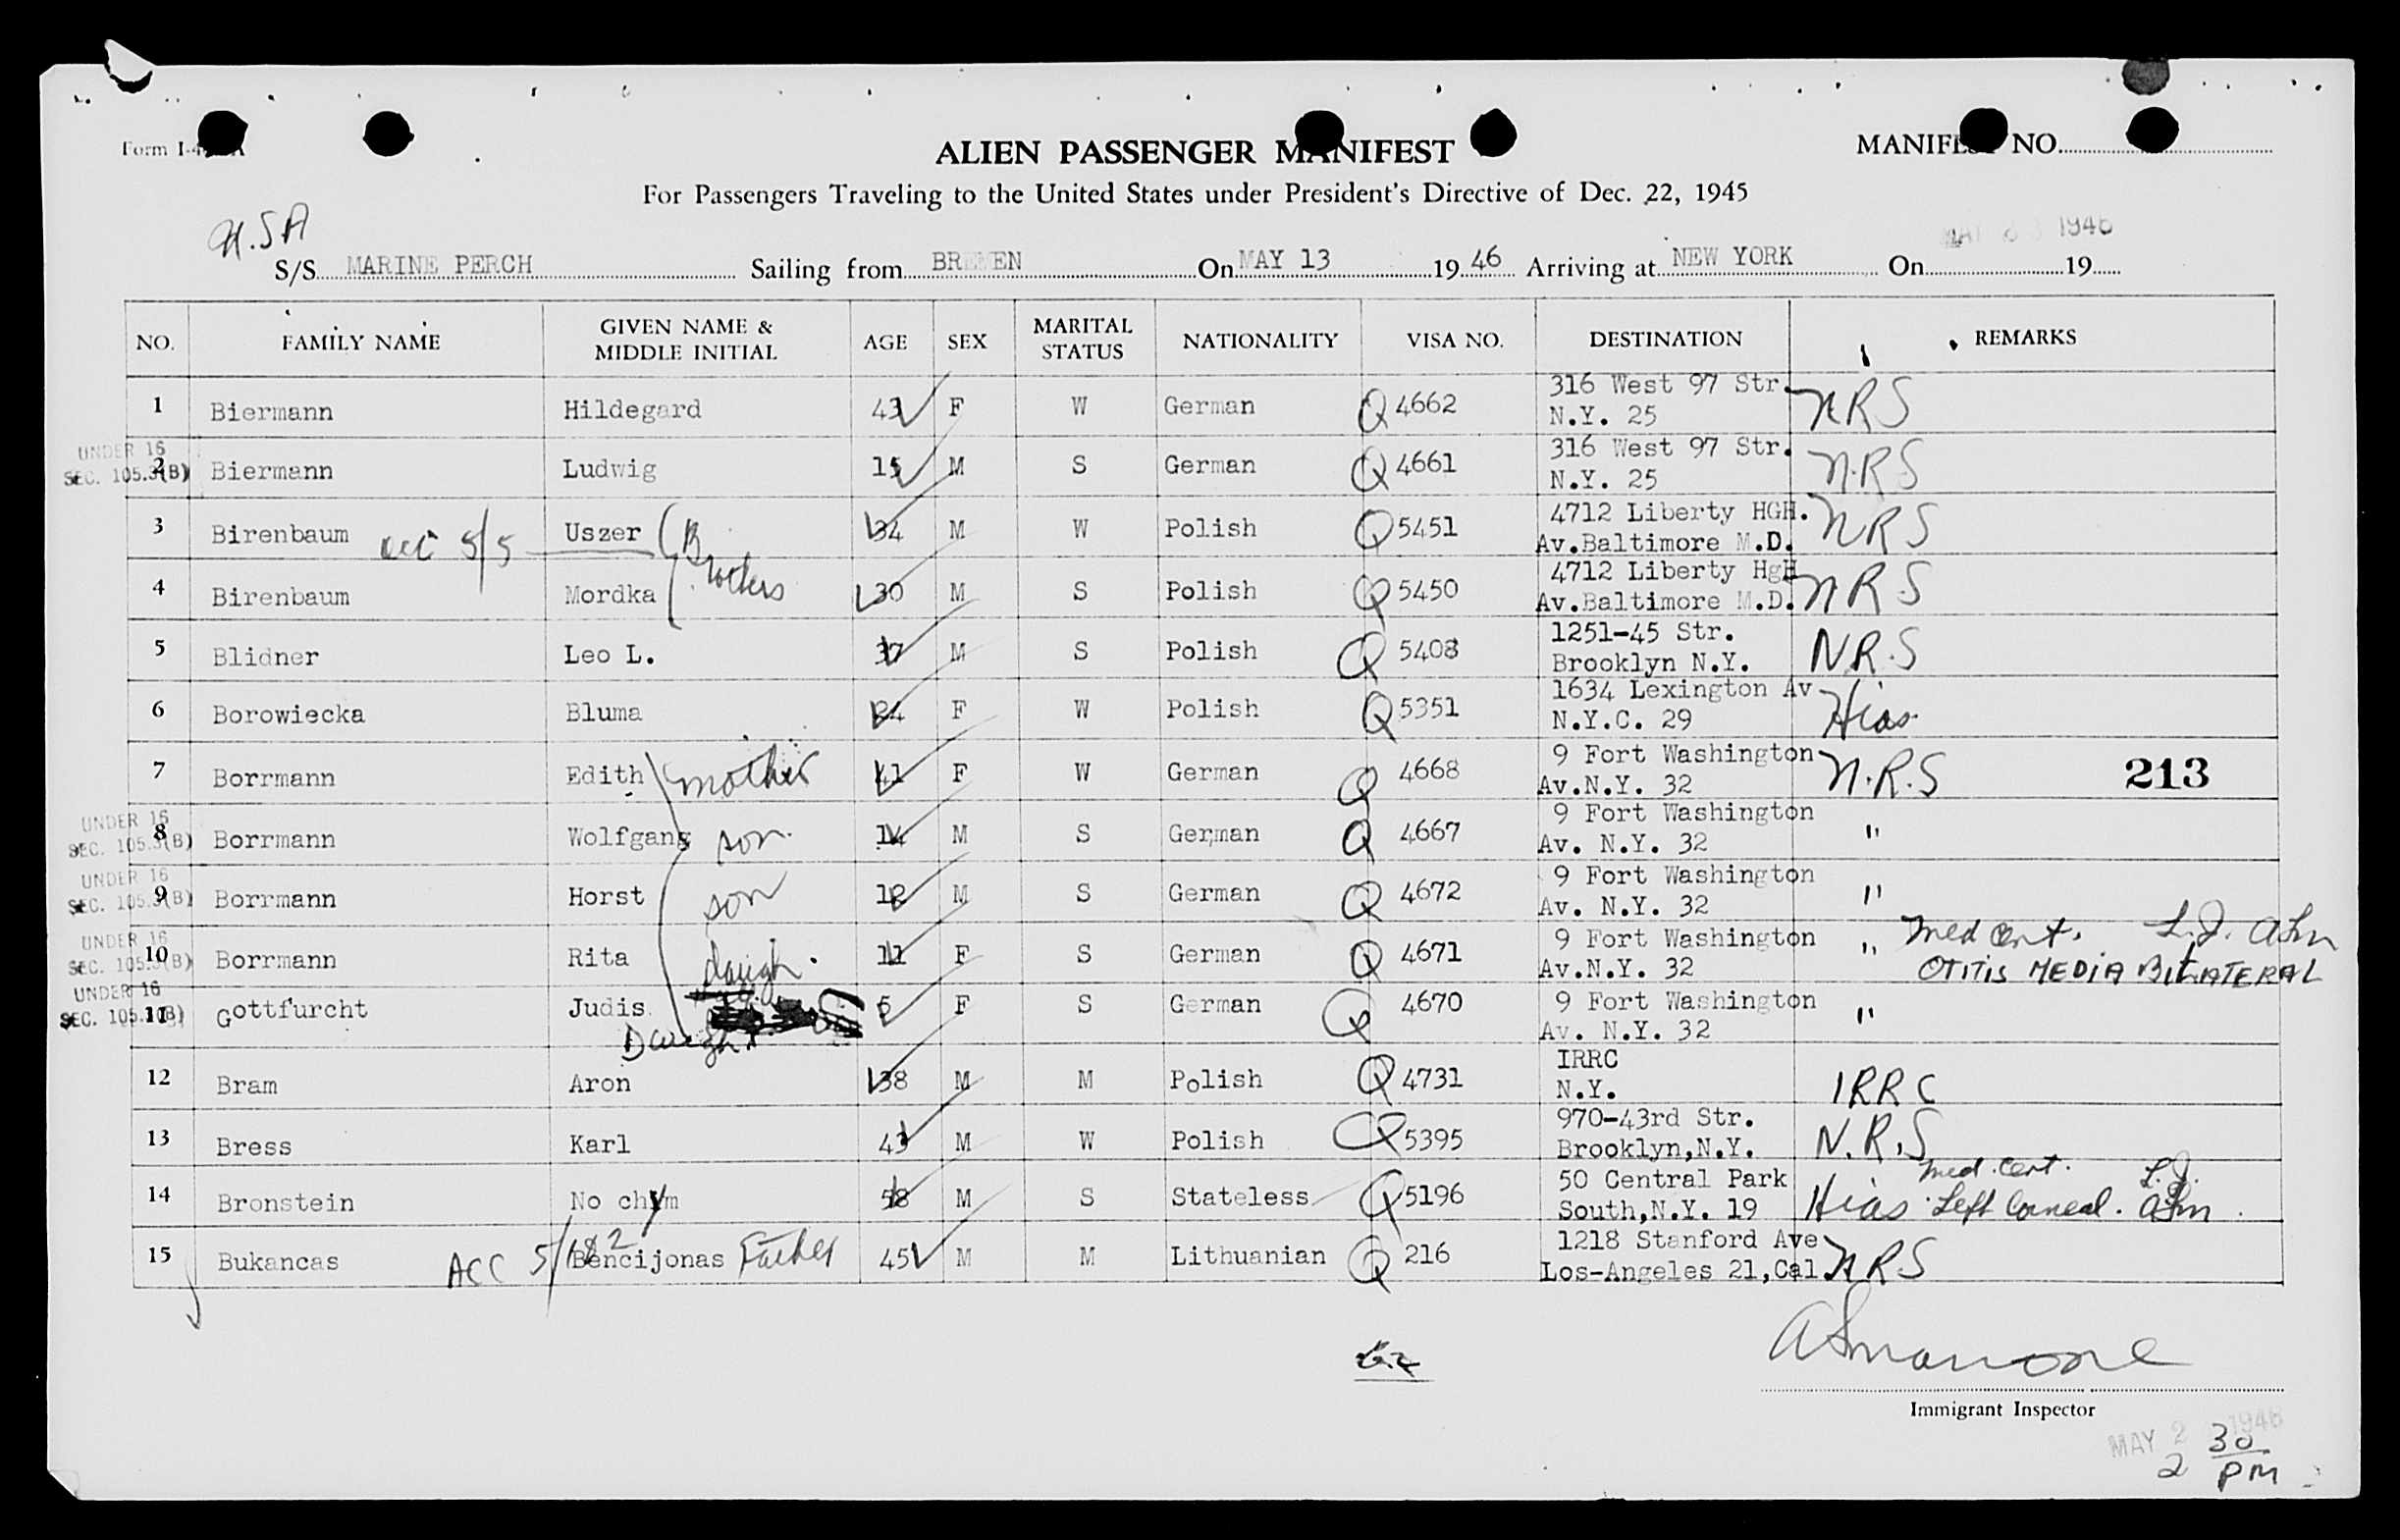 Form I-4
ALIEN PASSENGER MANIFEST
MANIFEST NO.
For Passengers Traveling to the United States under President's Directive of Dec. 22, 1945
1946
S/S MARINE PERCH Sailing from BREMEN On MAY 13 19 46 Arriving at NEW YORK On 19
NO. FAMILY NAME GIVEN NAME & MIDDLE INITIAL AGE SEX MARITAL STATUS NATIONALITY VISA NO. DESTINATION REMARKS
1 Biermann Hildegard 43 F W German Q 4662 316 West 97 Str. N.Y. 25 NRS
UNDER 16 SEC. 105.3(B)
2 Biermann Ludwig 15 M S German Q 4661 316 West 97 Str. N.Y. 25 N.R.S
3 Birenbaum 5/5 Uszer (Brothers 34 M W Polish Q 5451 4712 Liberty HGH. Av.Baltimore M.D. NRS
4 Birenbaum Mordka 30 M S Polish Q 5450 4712 Liberty HgH Av.Baltimore M.D. NRS
5 Blidner Leo L. 37 M S Polish Q 5408 1251-45 Str. Brooklyn N.Y. N.R.S
6 Borowiecka Bluma 24 F W Polish Q 5351 1634 Lexington Av N.Y.C. 29 Hias
7 Borrmann Edith mother 41 F W German Q 4668 9 Fort Washington Av.N.Y. 32 N.R.S 213
UNDER 16 SEC. 105.3(B)
8 Borrmann Wolfgang son. 14 M S German Q 4667 9 Fort Washington Av. N.Y. 32 "
UNDER 16 SEC. 105.3(B)
9 Borrmann Horst son 12 M S German Q 4672 9 Fort Washington Av. N.Y. 32 "
UNDER 16 SEC. 105.3(B)
10 Borrmann Rita daugh. 11 F S German Q 4671 9 Fort Washington Av.N.Y. 32 " Med Cert. L.J. OTITIS MEDIA BILATERAL
UNDER 16 SEC. 105.3(B)
11 Gottfurcht Judis Daught. 5 F S German Q 4670 9 Fort Washington Av. N.Y. 32 "
12 Bram Aron 38 M M Polish Q 4731 IRRC N.Y. IRRC
13 Bress Karl 43 M W Polish Q 5395 970-43rd Str. Brooklyn,N.Y. N.R.S
14 Bronstein No chym 58 M S Stateless Q 5196 50 Central Park South,N.Y. 19 Hias Med. Cert. Left Corneal. L.J.
15 Bukancas ACC 5/182 Bencijonas Father 45 M M Lithuanian Q 216 1218 Stanford Ave Los-Angeles 21,Cal NRS
Immigrant Inspector
MAY 2 1946
2 30 PM